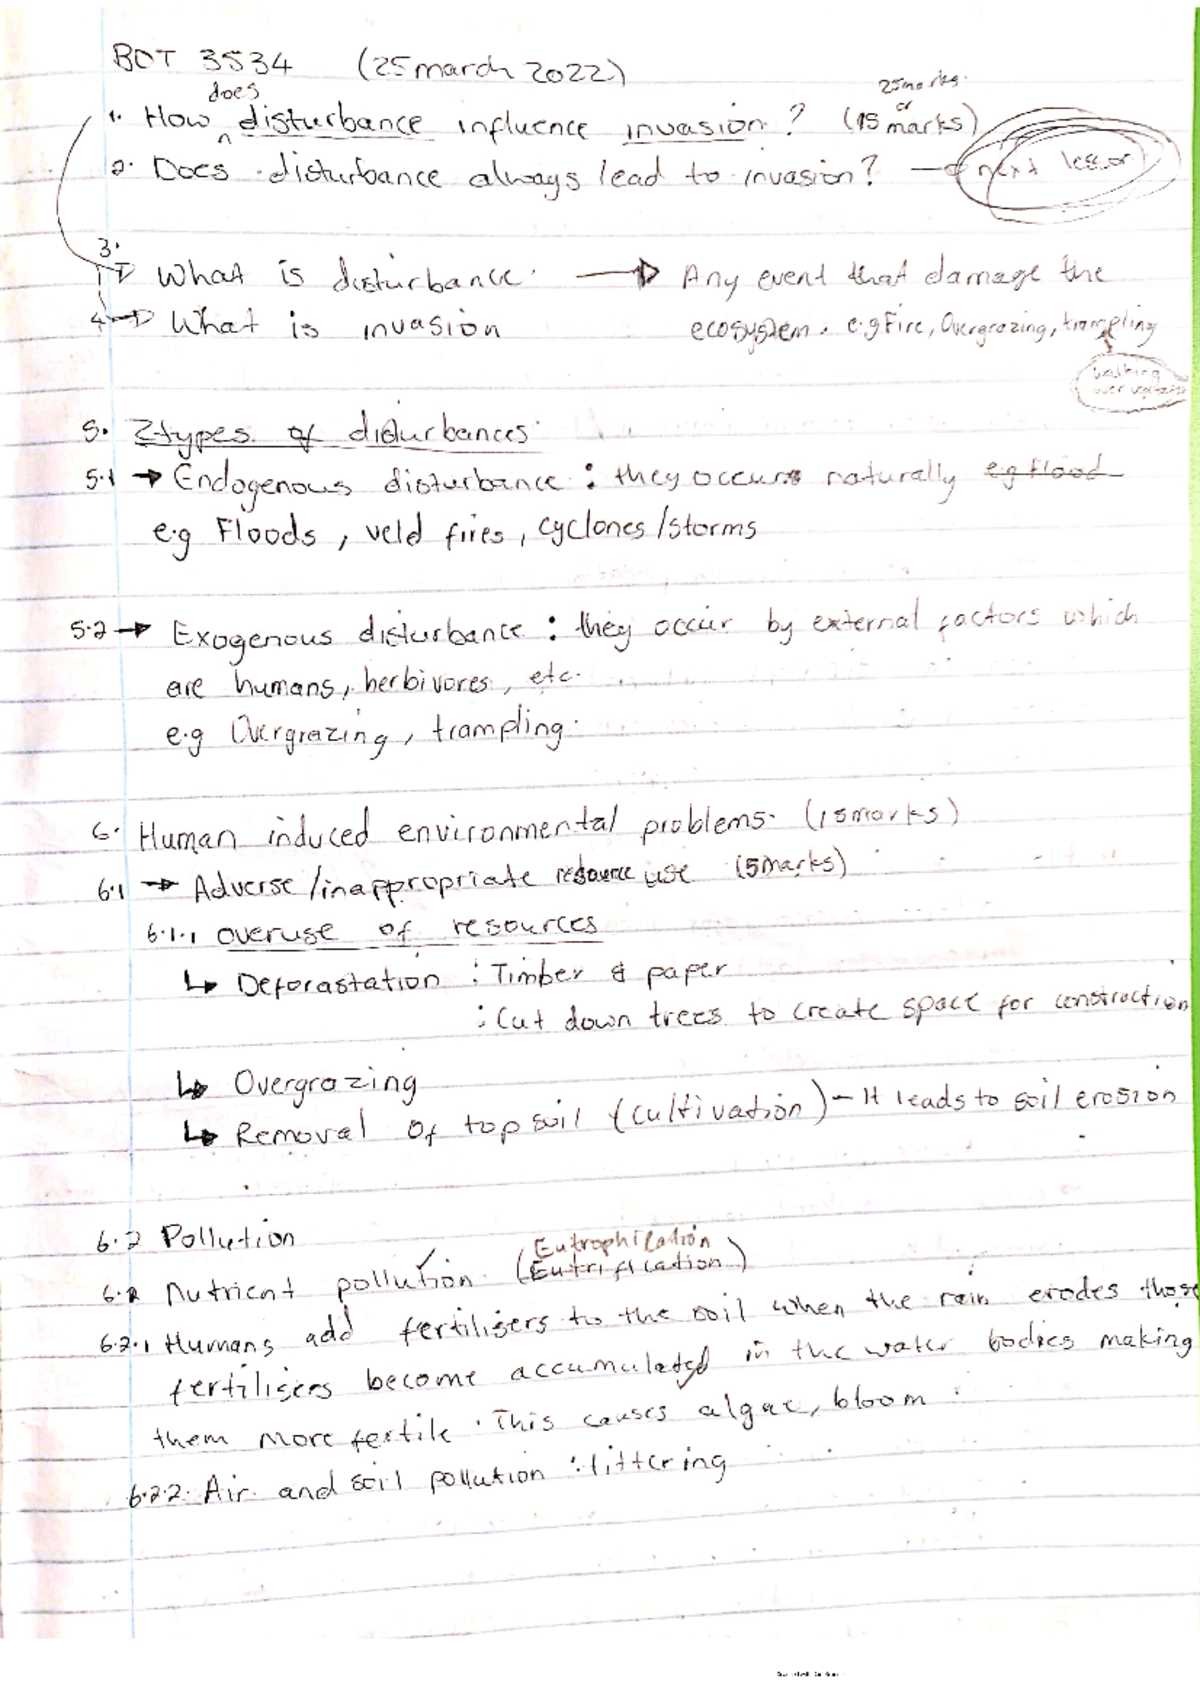 BOT 3534 (25 march 2022)
25marks.
or
does
1. How ^ disturbance influence invasion? (15 marks)
2. Does disturbance always lead to invasion? → next lesson
3.
→ What is disturbance. → Any event that damage the
4 → What is invasion ecosystem. e.g Fire, Overgrazing, trampling
walking
over vegetation
5. 2 types of disturbances
5.1 → Endogenous disturbance : they occurs naturally e.g flood
e.g Floods, veld fires, cyclones/storms
5.2 → Exogenous disturbance : they occur by external factors which
are humans, herbivores, etc.
e.g Overgrazing, trampling.
6. Human induced environmental problems. (15marks)
6.1 → Adverse/inappropriate resource use (5marks)
6.1.1 overuse of resources
↳ Deforastation : Timber & paper
: Cut down trees to create space for construction
↳ Overgrazing
↳ Removal of top soil (cultivation) - It leads to soil erosion
6.2 Pollution
Eutrophication
6.2 Nutrient pollution. (Eutrification)
6.2.1 Humans add fertilisers to the soil when the rain erodes those
fertilisers become accumulated in the water bodies making
them more fertile. This causes algae, bloom.
6.2.2. Air and soil pollution : littering